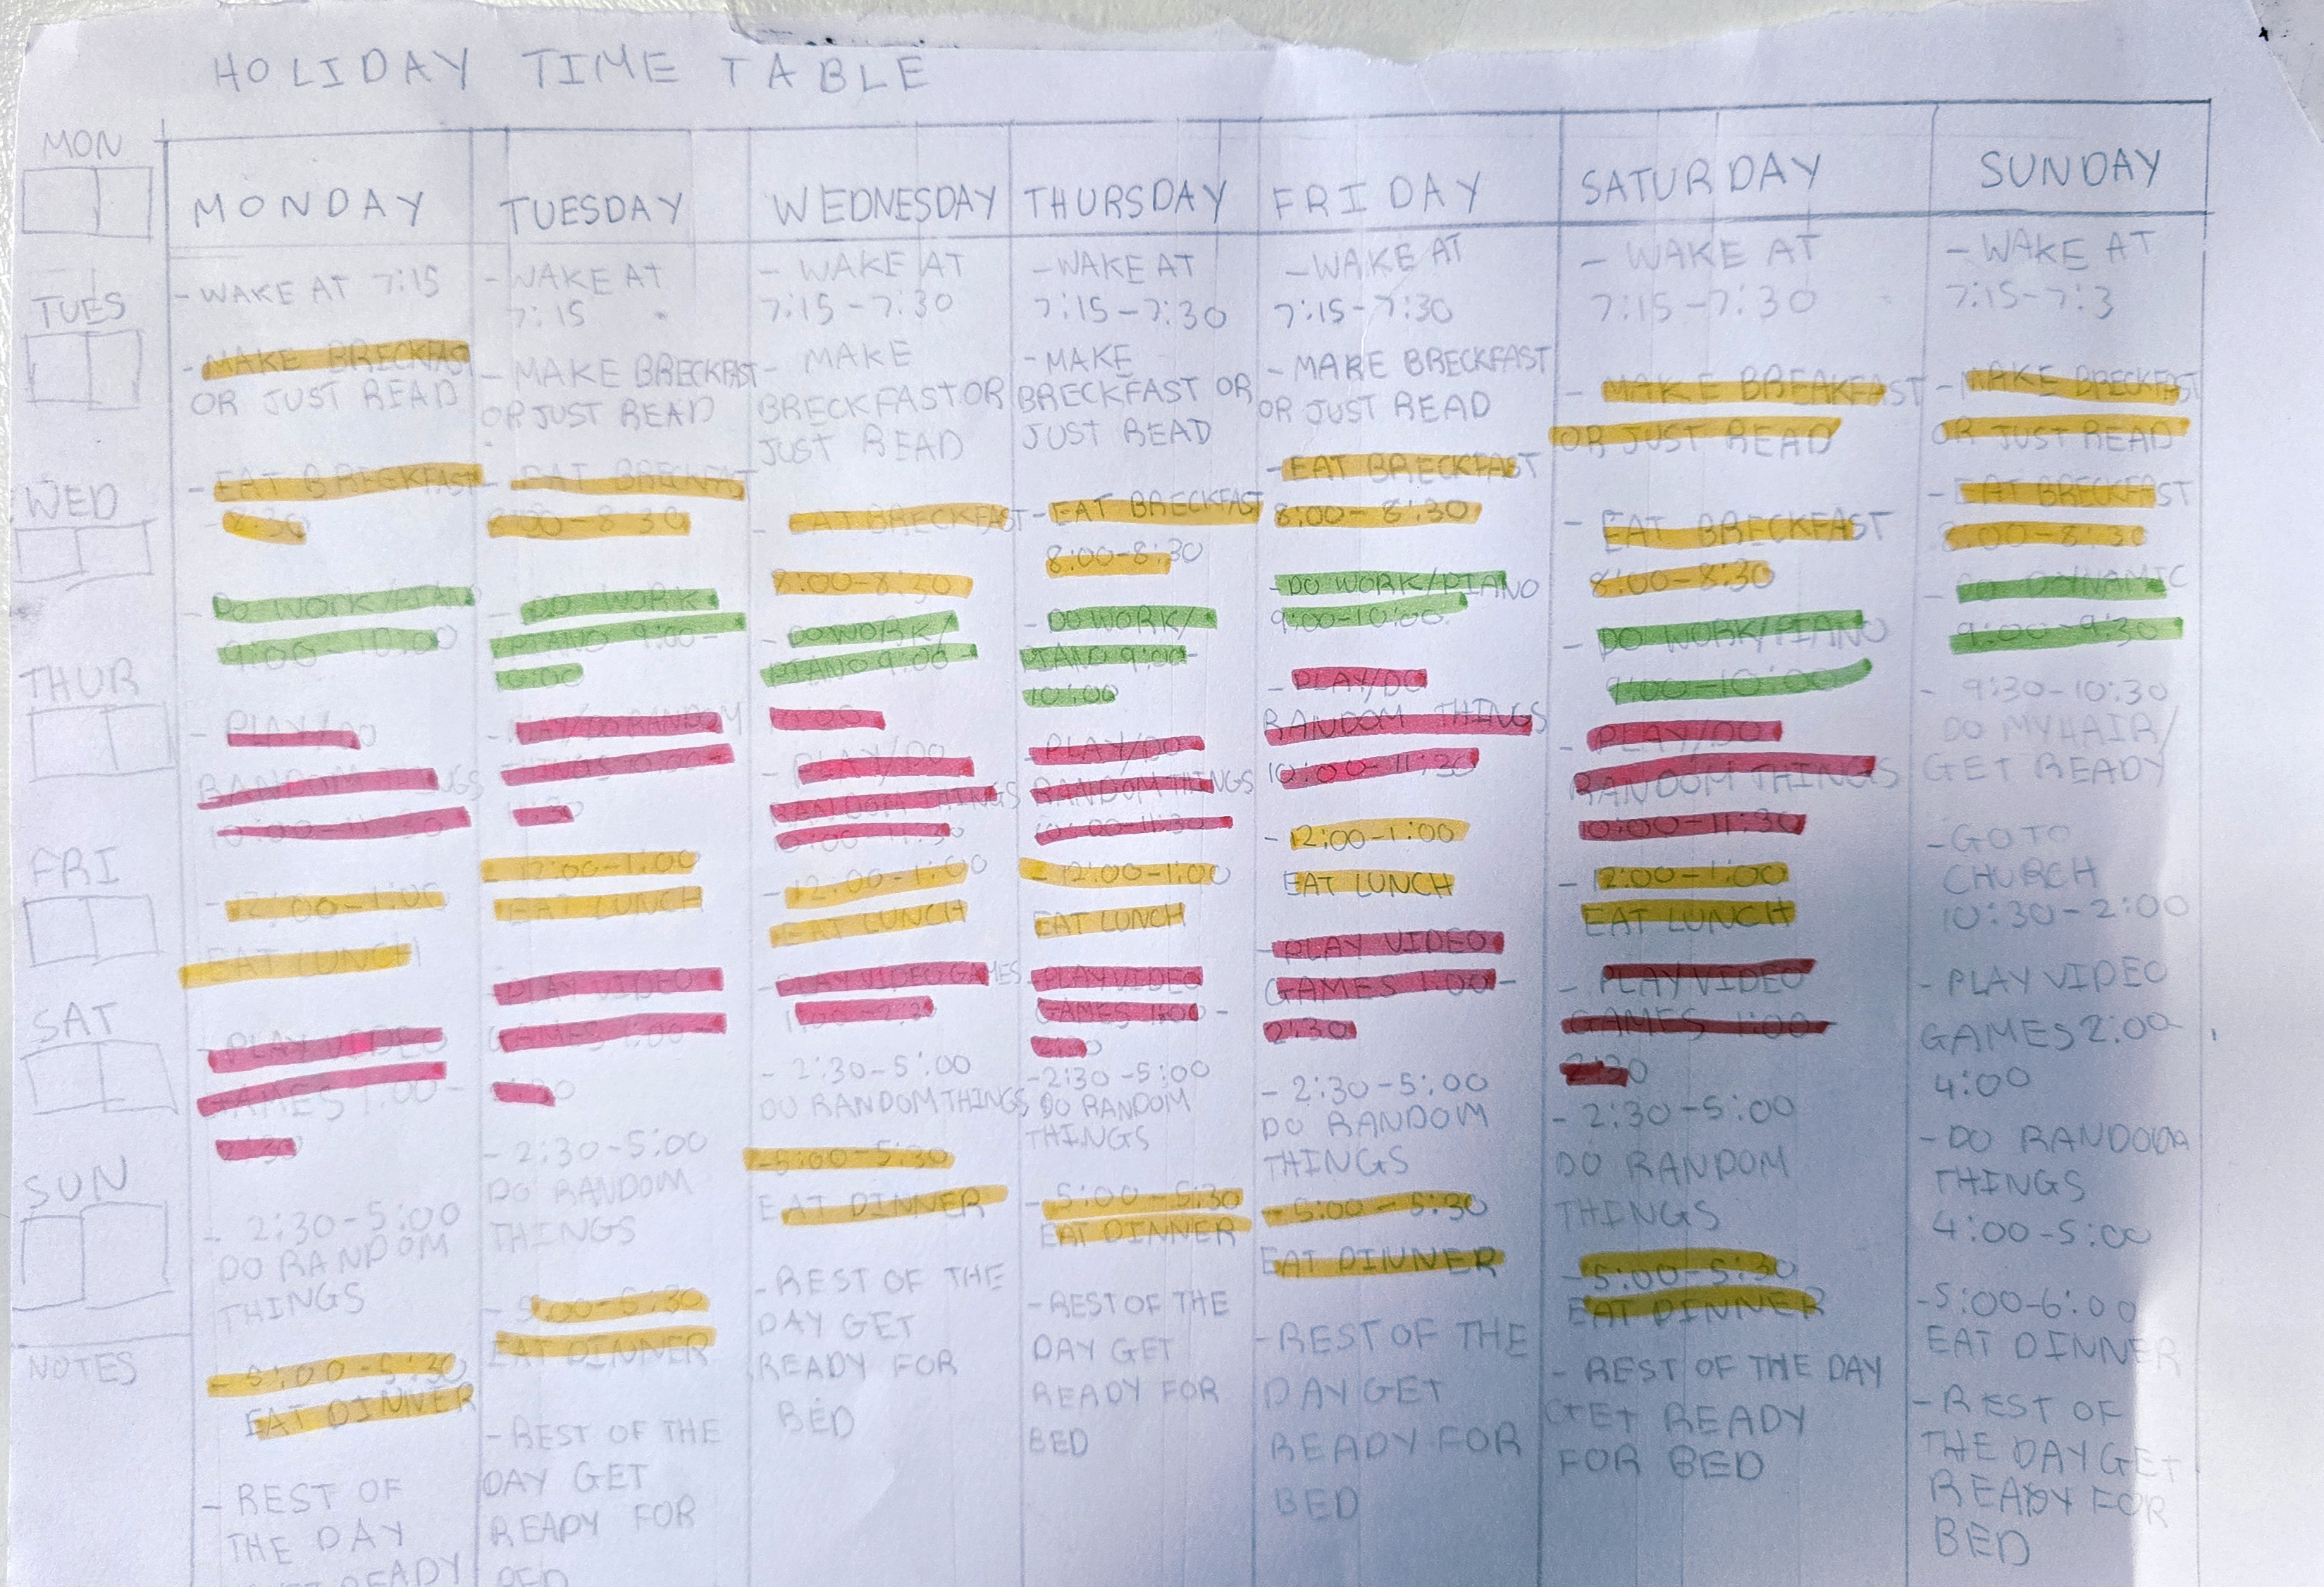 HOLIDAY TIME TABLE
MON
TUES
WED
THUR
FRI
SAT
SUN
NOTES
MONDAY
- WAKE AT 7:15
- MAKE BRECKFAST
OR JUST READ
- EAT BRECKFAST
8:30
- DO WORK/PIANO
9:00-10:00
- PLAY/DO
RANDOM THINGS
10:00-11:30
- 12:00-1:00
EAT LUNCH
- PLAY VIDEO
GAMES 1:00-
2:30
- 2:30-5:00
DO RANDOM
THINGS
- 5:00-5:30
EAT DINNER
- REST OF
THE DAY
GET READY
TUESDAY
- WAKE AT
7:15
- MAKE BRECKFAST
OR JUST READ
- EAT BRECKFAST
8:00-8:30
- DO WORK
PIANO 9:00-
10:00
- PLAY/DO RANDOM
THINGS 10:00-
11:30
- 12:00-1:00
EAT LUNCH
- PLAY VIDEO
GAMES 1:00-
2:30
- 2:30-5:00
DO RANDOM
THINGS
- 5:00-5:30
EAT DINNER
- REST OF THE
DAY GET
READY FOR
BED
WEDNESDAY
- WAKE AT
7:15-7:30
- MAKE
BRECKFAST OR
JUST READ
- EAT BRECKFAST
8:00-8:30
- DO WORK/
PIANO 9:00-
10:00
- PLAY/DO
RANDOM THINGS
10:00-11:30
- 12:00-1:00
EAT LUNCH
- PLAY VIDEO GAMES
1:00-2:30
- 2:30-5:00
DO RANDOM THINGS
- 5:00-5:30
EAT DINNER
- REST OF THE
DAY GET
READY FOR
BED
THURSDAY
- WAKE AT
7:15-7:30
- MAKE
BRECKFAST OR
JUST READ
- EAT BRECKFAST
8:00-8:30
- DO WORK/
PIANO 9:00-
10:00
- PLAY/DO
RANDOM THINGS
10:00-11:30
- 12:00-1:00
EAT LUNCH
- PLAY VIDEO
GAMES 1:00-
2:30
- 2:30-5:00
DO RANDOM
THINGS
- 5:00-5:30
EAT DINNER
- REST OF THE
DAY GET
READY FOR
BED
FRIDAY
- WAKE AT
7:15-7:30
- MAKE BRECKFAST
OR JUST READ
- EAT BRECKFAST
8:00-8:30
- DO WORK/PIANO
9:00-10:00
- PLAY/DO
RANDOM THINGS
10:00-11:30
- 12:00-1:00
EAT LUNCH
- PLAY VIDEO
GAMES 1:00-
2:30
- 2:30-5:00
DO RANDOM
THINGS
- 5:00-5:30
EAT DINNER
- REST OF THE
DAY GET
READY FOR
BED
SATURDAY
- WAKE AT
7:15-7:30
- MAKE BREAKFAST
OR JUST READ
- EAT BRECKFAST
8:00-8:30
- DO WORK/PIANO
9:00-10:00
- PLAY/DO
RANDOM THINGS
10:00-11:30
- 12:00-1:00
EAT LUNCH
- PLAY VIDEO
GAMES 1:00-
2:30
- 2:30-5:00
DO RANDOM
THINGS
- 5:00-5:30
EAT DINNER
- REST OF THE DAY
GET READY
FOR BED
SUNDAY
- WAKE AT
7:15-7:3
- MAKE BRECKFAST
OR JUST READ
- EAT BRECKFAST
8:00-8:30
- DO DYNAMIC
9:00-9:30
- 9:30-10:30
DO MY HAIR/
GET READY
- GO TO
CHURCH
10:30-2:00
- PLAY VIDEO
GAMES 2:00-
4:00
- DO RANDOM
THINGS
4:00-5:00
- 5:00-6:00
EAT DINNER
- REST OF
THE DAY GET
READY FOR
BED